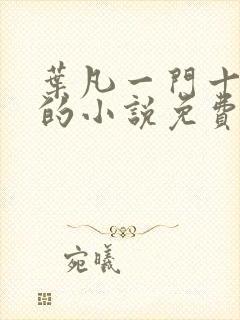 葉凡一門十
的小說免費
宛曦